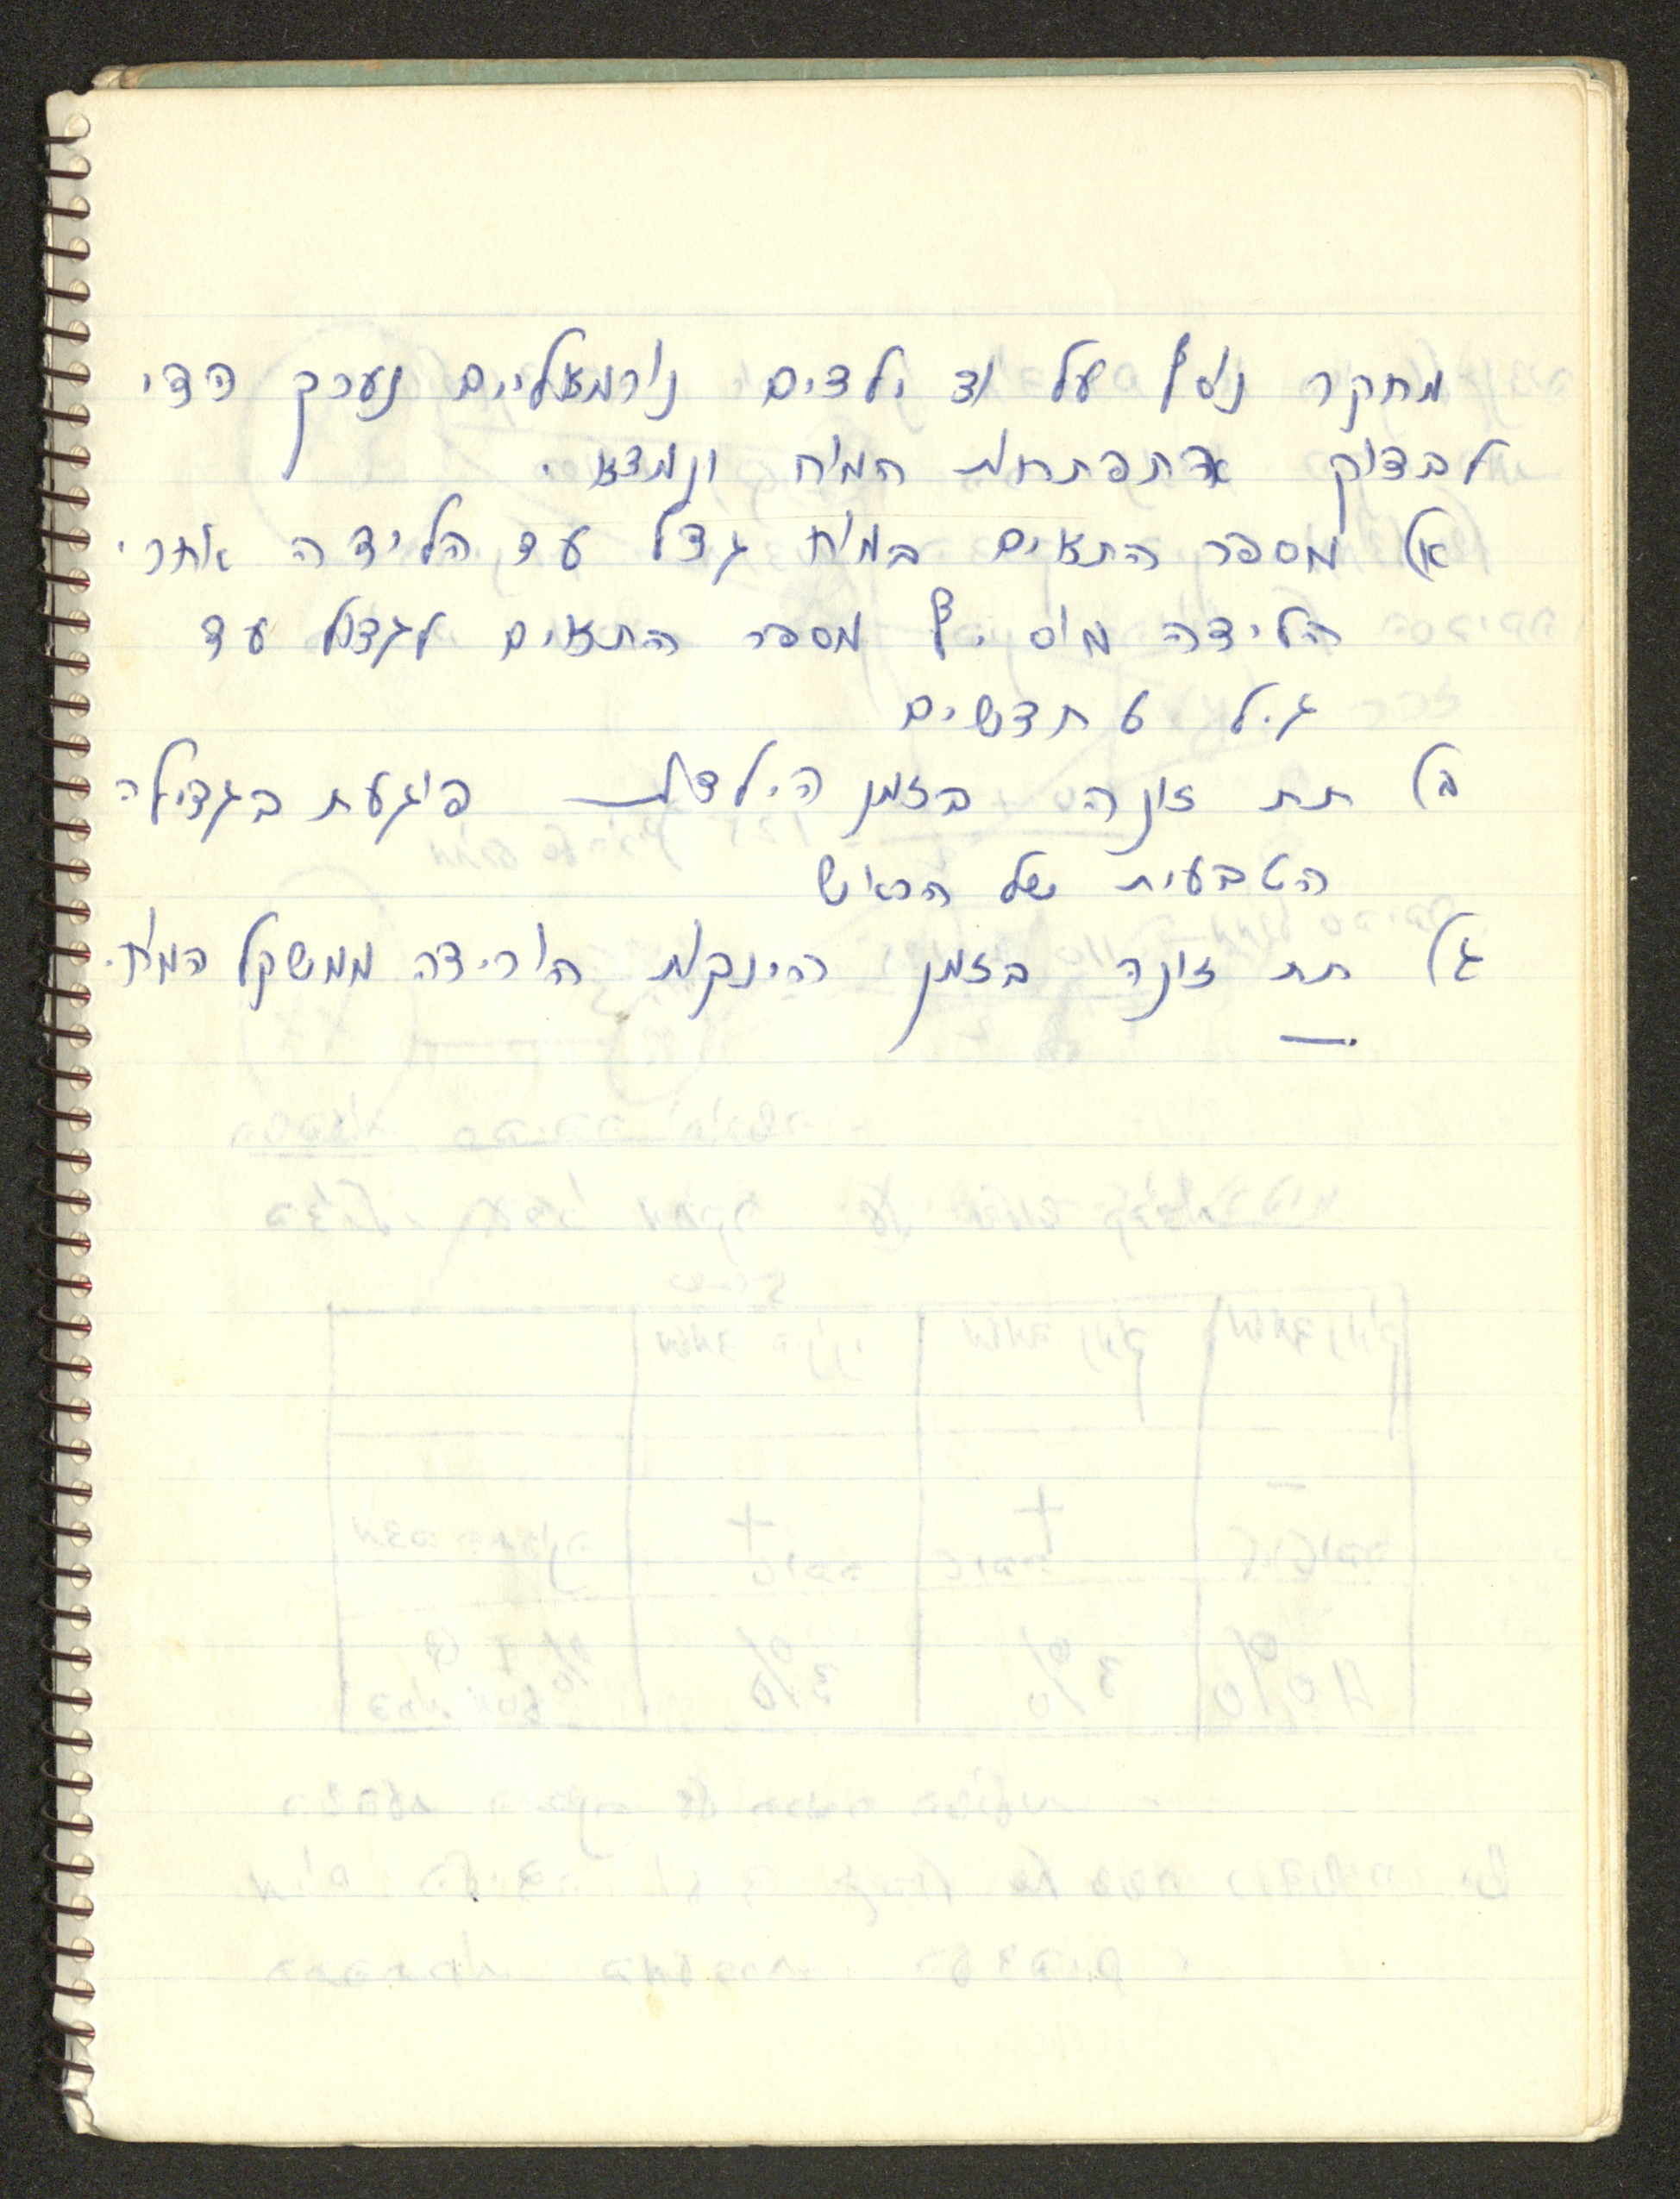 מחקר נוסף על ילדים נורמאליים נערך הדי
לבדוק התפתחות המוח ונמצא.
א) מספר התאים במוח גדל עד הלידה אחרי
הלידה מוסיף מספר התאים לגדול עד
גיל 6 חדשים
ב) תת זונה בזמן הילדות פוגעת בגדילה
הטבעית של הראש
ג) תת זונה בזמן הינקות הורידה ממשקל המוח.